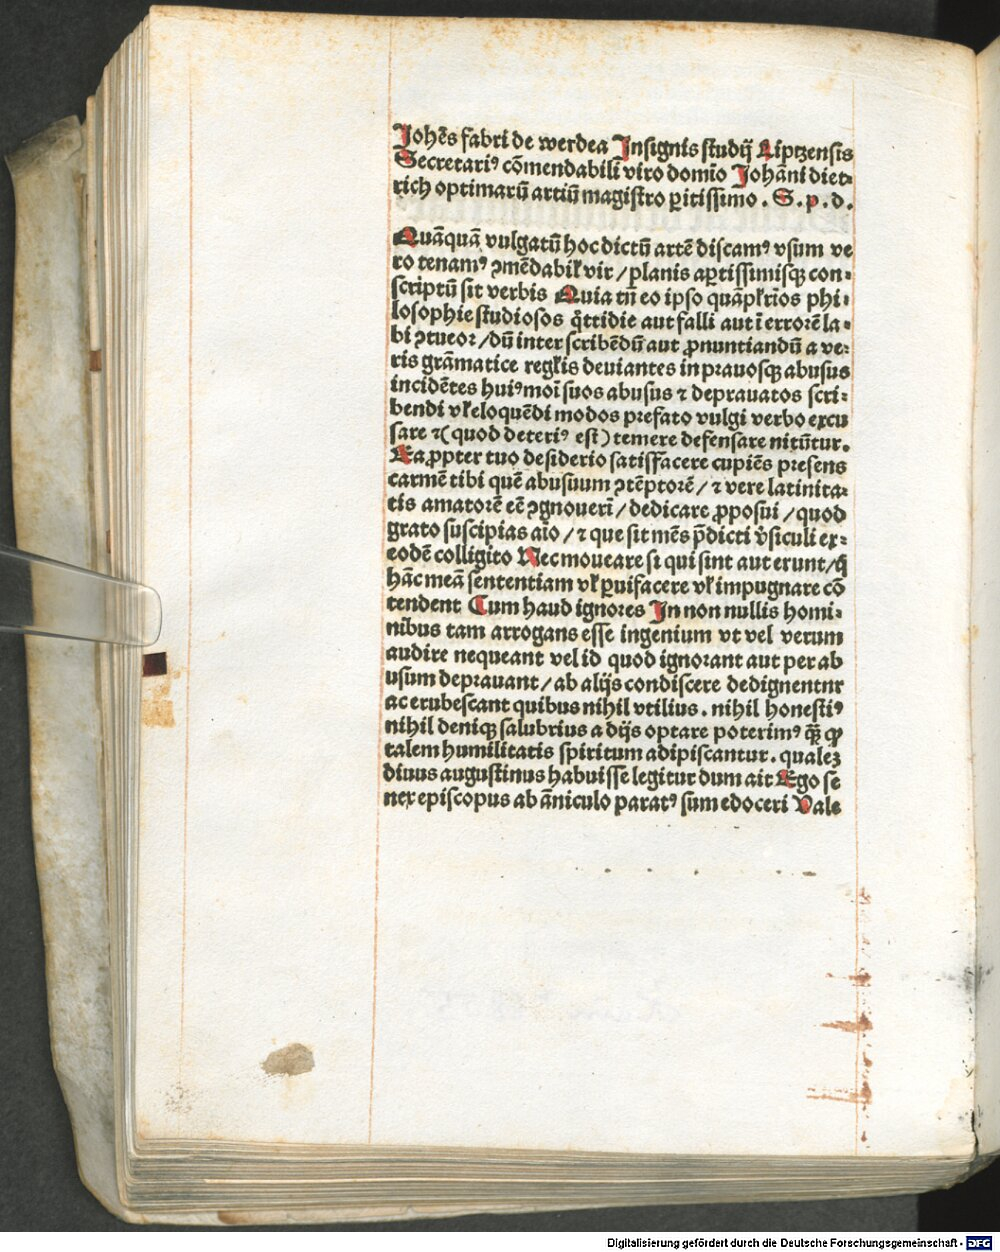 Johēs fabri de werdea Insignis studij̄ Liptzensis
Secretariꝰ cōmendabili viro domīo Johāni diet⸗
rich optimarū artiū magistro ꝑitissimo . S. p. d.
Quāquā vulgatū hoc dictū artē discamꝰ vsum ve
ro tenamꝰ ꝯmēdabilꝭ vir / planis aꝑtissimisqꝫ con⸗
scriptū sit verbis Quia tn̄ eo ipso quāplꝛīos phi⸗
losophie studiosos q̄ttidie aut falli aut ī errorē la⸗
bi ꝯtueor / dū inter scribēdū aut ꝓnuntiandū a ve⸗
ris grāmatice reglꝭis deuiantes in prauosqꝫ abusus
incidētes huiꝰmoī suos abusus ⁊ deprauatos scri⸗
bendi vlꝭ eloquēdi modos prefato vulgi verbo excu
sare ⁊ (quod deteriꝰ est) temere defensare nitūtur.
Ea ꝓpter tuo desiderio satisfacere cupiēs presens
carmē tibi quē abusuum ꝯtēptorē / ⁊ vere latinita⸗
tis amatorē eē ꝯgnouerī / dedicare ꝓposui / quod
grato suscipias aīo / ⁊ que sit mēs p̄dicti v̓siculi ex⸗
eodē colligito Nec moueare si qui sint aut erunt / q̄
hāc meā sententiam vlꝭ ꝑuifacere vlꝭ impugnare cō
tendent Cum haud ignores In non nullis homi⸗
nibus tam arrogans esse ingenium vt vel verum
audire nequeant vel id quod ignorant aut per ab
usum deprauant / ab alijs condiscere dedignentnr
ac erubescant quibus nihil vtilius . nihil honestiꝰ
nihil deniqꝫ salubrius a dijs optare poterimꝰ qꝫ̄ ꝙ
talem humilitatis spiritum adipiscantur . qualeꝫ
diuus augustinus habuisse legitur dum ait Ego se
nex episcopus ab āniculo paratꝰ sum edoceri Vale
Digitalisierung gefördert durch die Deutsche Forschungsgemeinschaft - DFG